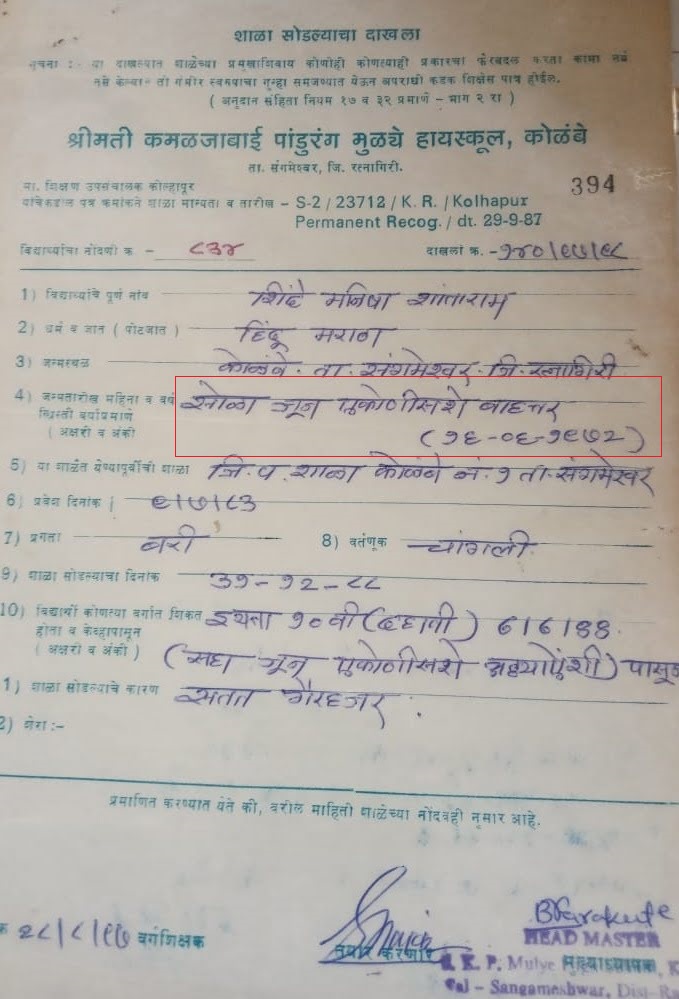 शाळा सोडल्याचा दाखला
सूचना :- या दाखल्यात शाळेच्या प्रमुखाशिवाय कोणीही कोणत्याही प्रकारचा फेरबदल करता कामा नये
तसे केल्यास तो गंभीर स्वरूपाचा गुन्हा समजण्यात येऊन अपराधी कडक शिक्षेस पात्र होईल.
( अनुदान संहिता नियम १७ व ३२ प्रमाणे - भाग २ रा )
श्रीमती कमळजाबाई पांडुरंग मुळ्ये हायस्कूल, कोळंबे
ता. संगमेश्वर, जि. रत्नागिरी.
मा. शिक्षण उपसंचालक कोल्हापूर
394
यांचेकडील पत्र क्रमांकने शाळा मान्यता व तारीख - S-2 / 23712 / K. R. / Kolhapur
Permanent Recog. / dt. 29-9-87
विद्यार्थ्याचा नोंदणी क - ८३४ दाखला क. - १४०/९७/९८
1) विद्यार्थ्याचे पूर्ण नांव शिंदे मनिषा शांताराम
2) धर्म व जात ( पोटजात ) हिंदू मराठा
3) जन्मस्थळ कोळंबे. ता. संगमेश्वर. जि. रत्नागिरी
4) जन्मतारीख महिना व वर्ष सोळा जून एकोणीसशे बाहत्तर
ख्रिस्ती वर्षाप्रमाणे
( अक्षरी व अंकी (१६-०६-१९७२)
5) या शाळेत येण्यापूर्वीची शाळा जि. प. शाळा कोळंबे नं. १ ता. संगमेश्वर
6) प्रवेश दिनांक ९/७/८३
7) प्रगती बरी 8) वर्तणूक चांगली
9) शाळा सोडल्याचा दिनांक ३१-१२-८८
10) विद्यार्थी कोणत्या वर्गात शिकत इयत्ता १०वी (दहावी) ६/६/८८.
होता व केव्हापासून
( अक्षरी व अंकी ) (सहा जून एकोणीसशे अठ्ठ्याऐंशी) पासून
1) शाळा सोडल्याचे कारण सतत गैरहजर.
2) शेरा :-
प्रमाणित करण्यात येते की, वरील माहिती शाळेच्या नोंदवही नुसार आहे.
क २८/८/९७ वर्गशिक्षक तयार करणार
HEAD MASTER
K. P. Mulye मुख्याध्यापक, K
Tal - Sangameshwar, Dist-Ra